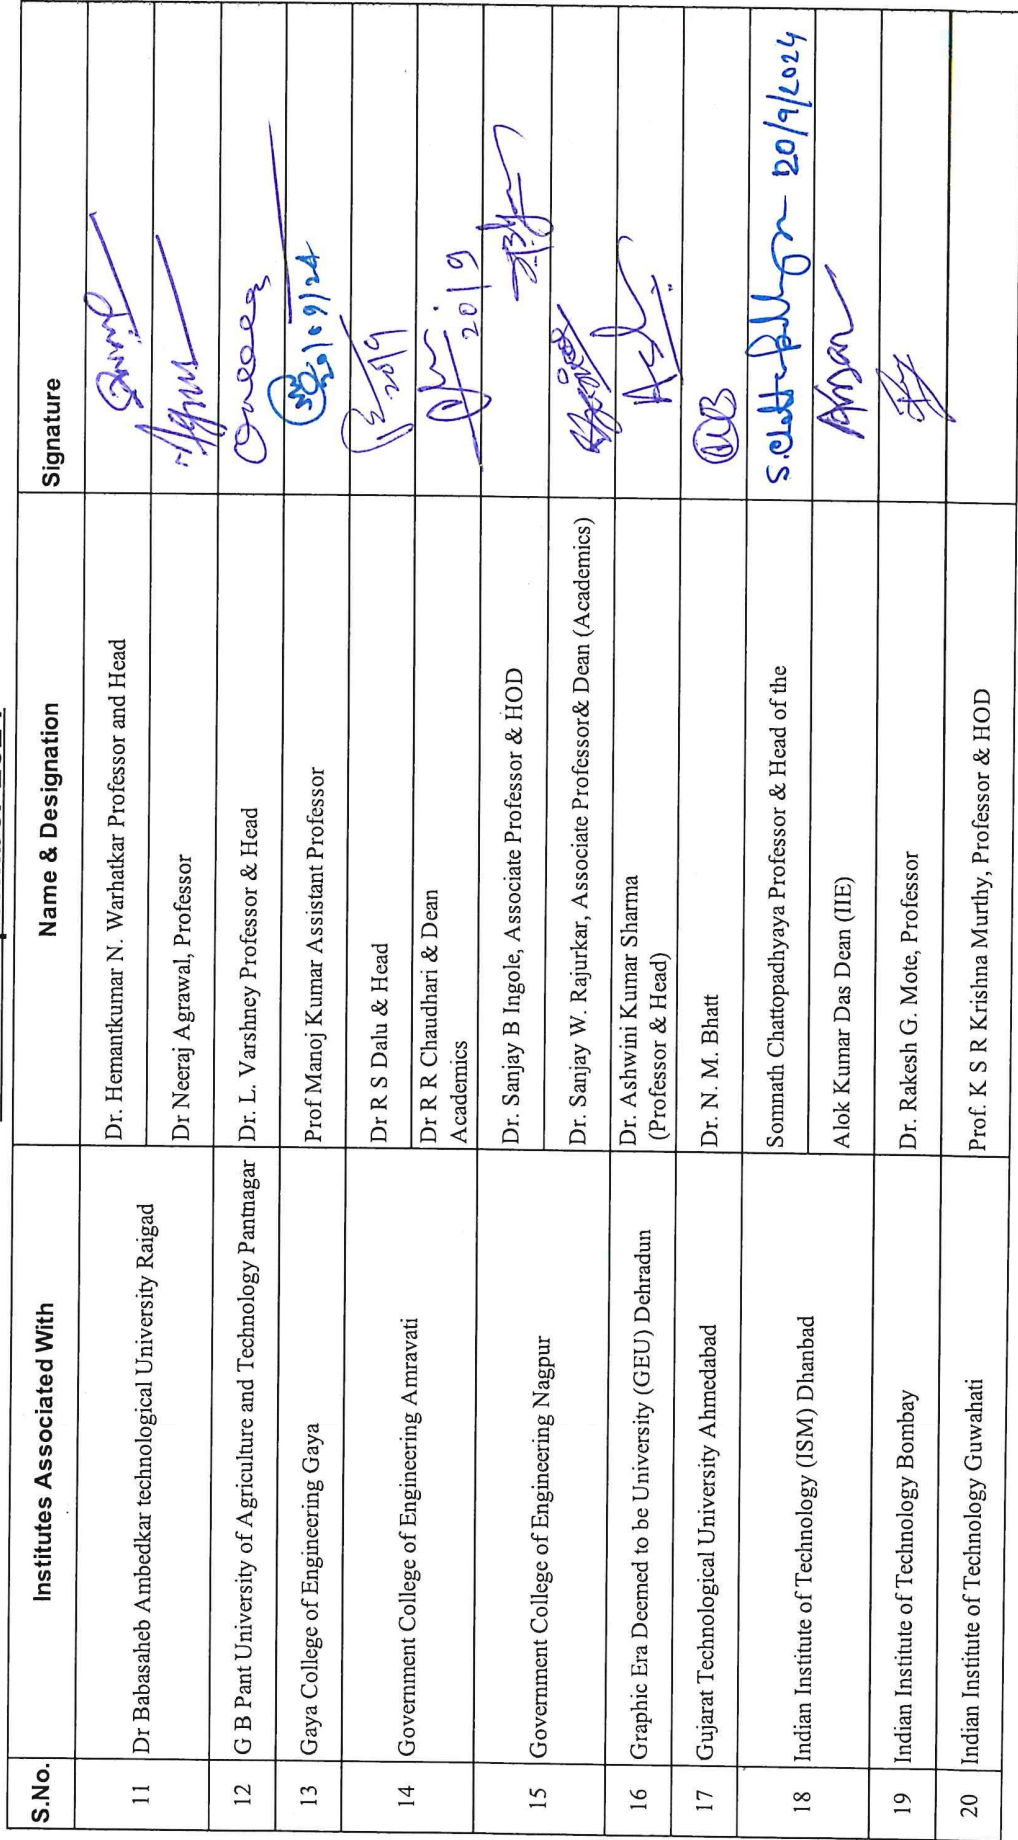 S.No. Institutes Associated With Name & Designation Signature
11 Dr Babasaheb Ambedkar technological University Raigad Dr. Hemantkumar N. Warhatkar Professor and Head
Dr Neeraj Agrawal, Professor
12 G B Pant University of Agriculture and Technology Pantnagar Dr. L. Varshney Professor & Head
13 Gaya College of Engineering Gaya Prof Manoj Kumar Assistant Professor 20/09/24
14 Government College of Engineering Amravati Dr R S Dalu & Head 20/9
Dr R R Chaudhari & Dean
Academics 20/9
15 Government College of Engineering Nagpur Dr. Sanjay B Ingole, Associate Professor & HOD
Dr. Sanjay W. Rajurkar, Associate Professor& Dean (Academics)
16 Graphic Era Deemed to be University (GEU) Dehradun Dr. Ashwini Kumar Sharma
(Professor & Head)
17 Gujarat Technological University Ahmedabad Dr. N. M. Bhatt
18 Indian Institute of Technology (ISM) Dhanbad Somnath Chattopadhyaya Professor & Head of the S.Chattopadhyaya 20/9/2024
Alok Kumar Das Dean (IIE)
19 Indian Institute of Technology Bombay Dr. Rakesh G. Mote, Professor
20 Indian Institute of Technology Guwahati Prof. K S R Krishna Murthy, Professor & HOD